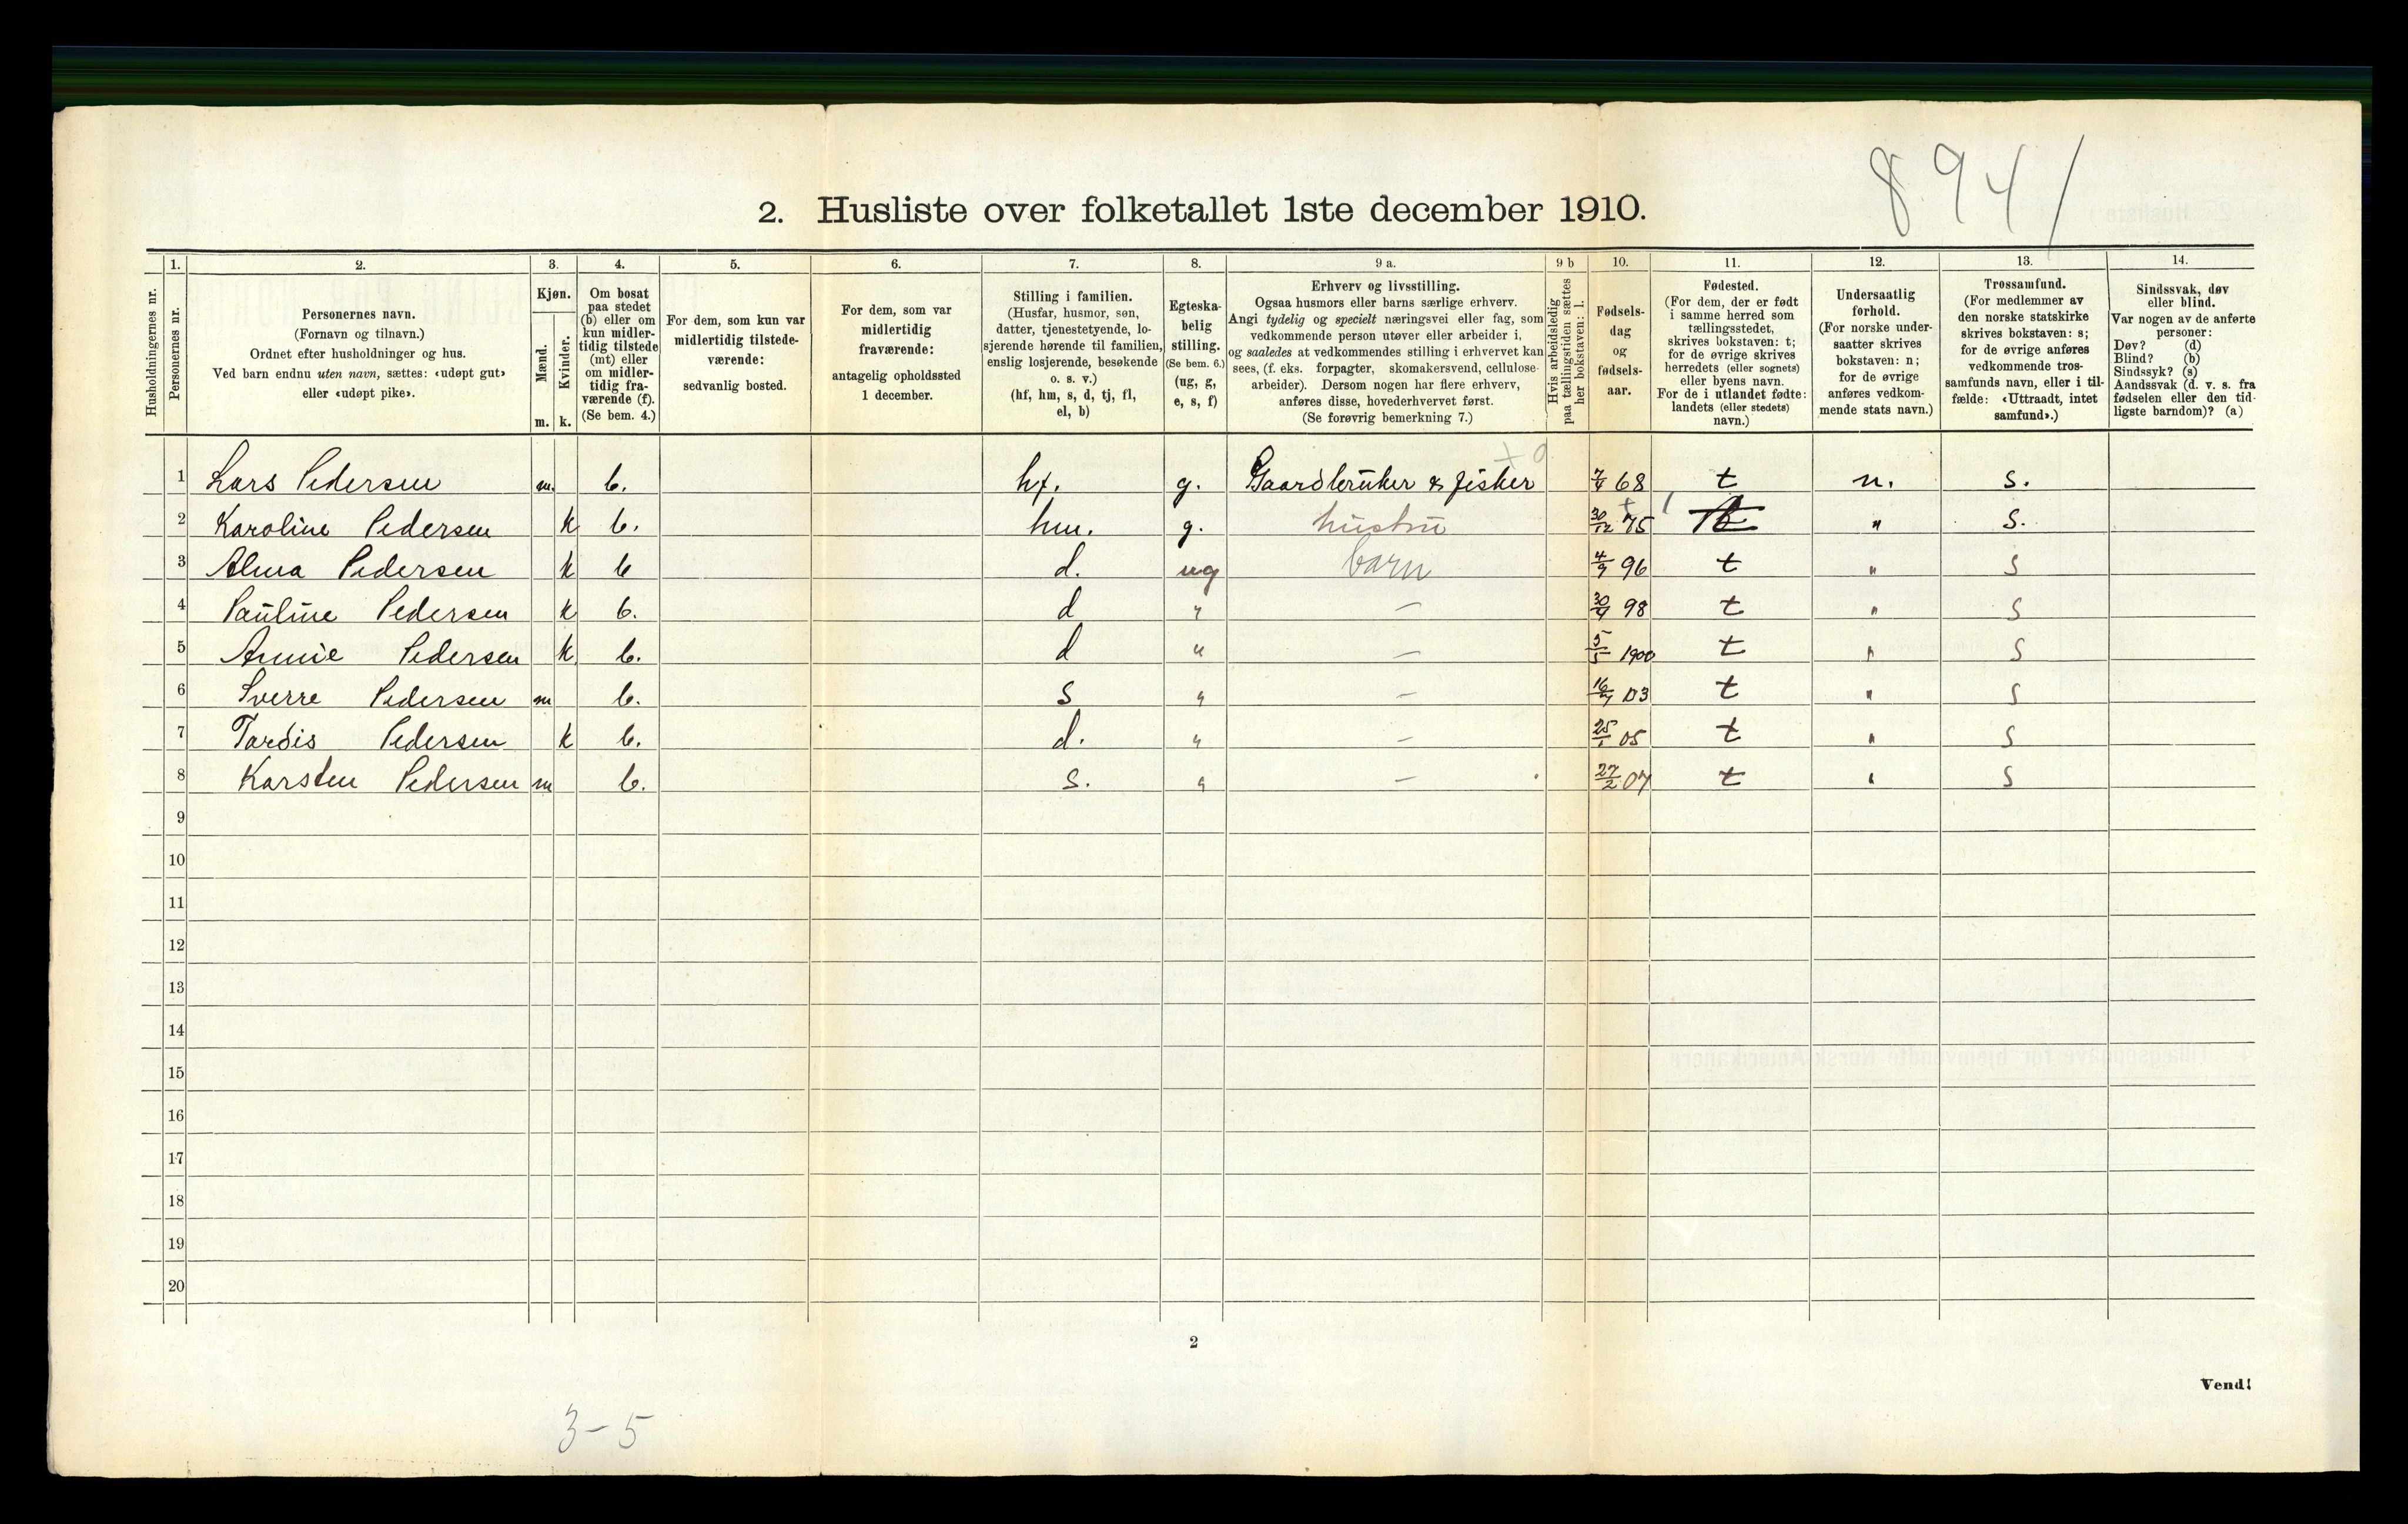 8941
2. Husliste over folketallet 1ste december 1910.
Husholdningernes nr.
1. Personernes nr.
2. Personernes navn. (Fornavn og tilnavn.) Ordnet efter husholdninger og hus. Ved barn endnu uten navn, sættes: «udøpt gut» eller «udøpt pike».
3. Kjøn. Mænd. m. Kvinder. k.
4. Om bosat paa stedet (b) eller om kun midlertidig tilstede (mt) eller om midlertidig fraværende (f). (Se bem. 4.)
5. For dem, som kun var midlertidig tilstedeværende: sedvanlig bosted.
6. For dem, som var midlertidig fraværende: antagelig opholdssted 1 december.
7. Stilling i familien. (Husfar, husmor, søn, datter, tjenestetyende, losjerende hørende til familien, enslig losjerende, besøkende o. s. v.) (hf, hm, s, d, tj, fl, el, b)
8. Egteskabelig stilling. (Se bem. 6.) (ug, g, e, s, f)
9 a. Erhverv og livsstilling. Ogsaa husmors eller barns særlige erhverv. Angi tydelig og specielt næringsvei eller fag, som vedkommende person utøver eller arbeider i, og saaledes at vedkommendes stilling i erhvervet kan sees, (f. eks. forpagter, skomakersvend, cellulosearbeider). Dersom nogen har flere erhverv, anføres disse, hovederhvervet først. (Se forøvrig bemerkning 7.)
9 b Hvis arbeidsledig paa tællingstiden sættes her bokstaven: l.
10. Fødselsdag og fødselsaar.
11. Fødested. (For dem, der er født i samme herred som tællingsstedet, skrives bokstaven: t; for de øvrige skrives herredets (eller sognets) eller byens navn. For de i utlandet fødte: landets (eller stedets) navn.)
12. Undersaatlig forhold. (For norske undersaatter skrives bokstaven: n; for de øvrige anføres vedkommende stats navn.)
13. Trossamfund. (For medlemmer av den norske statskirke skrives bokstaven: s; for de øvrige anføres vedkommende trossamfunds navn, eller i tilfælde: «Uttraadt, intet samfund».)
14. Sindssvak, døv eller blind. Var nogen av de anførte personer: Døv? (d) Blind? (b) Sindssyk? (s) Aandssvak (d. v. s. fra fødselen eller den tidligste barndom)? (a)
1 Lars Pedersen m. b. hf. g. Gaardbruker & fisker 7/4 68 t n. s.
2 Karoline Pedersen k b. hm. g. hustru 30/12 75 " s.
3 Alma Pedersen k b d. ug barn 4/9 96 t " s
4 Pauline Pedersen k b. d " — 30/4 98 t " s
5 Annie Pedersen k b. d " — 5/5 1900 t " s
6 Sverre Pedersen m b. s " — 16/4 03 t " s
7 Tordis Pedersen k b. d. " — 25/1 05 t " s
8 Karsten Pedersen m b. s. " — 27/2 07 t " s
9
10
11
12
13
14
15
16
17
18
19
20
2
Vend!
3-5